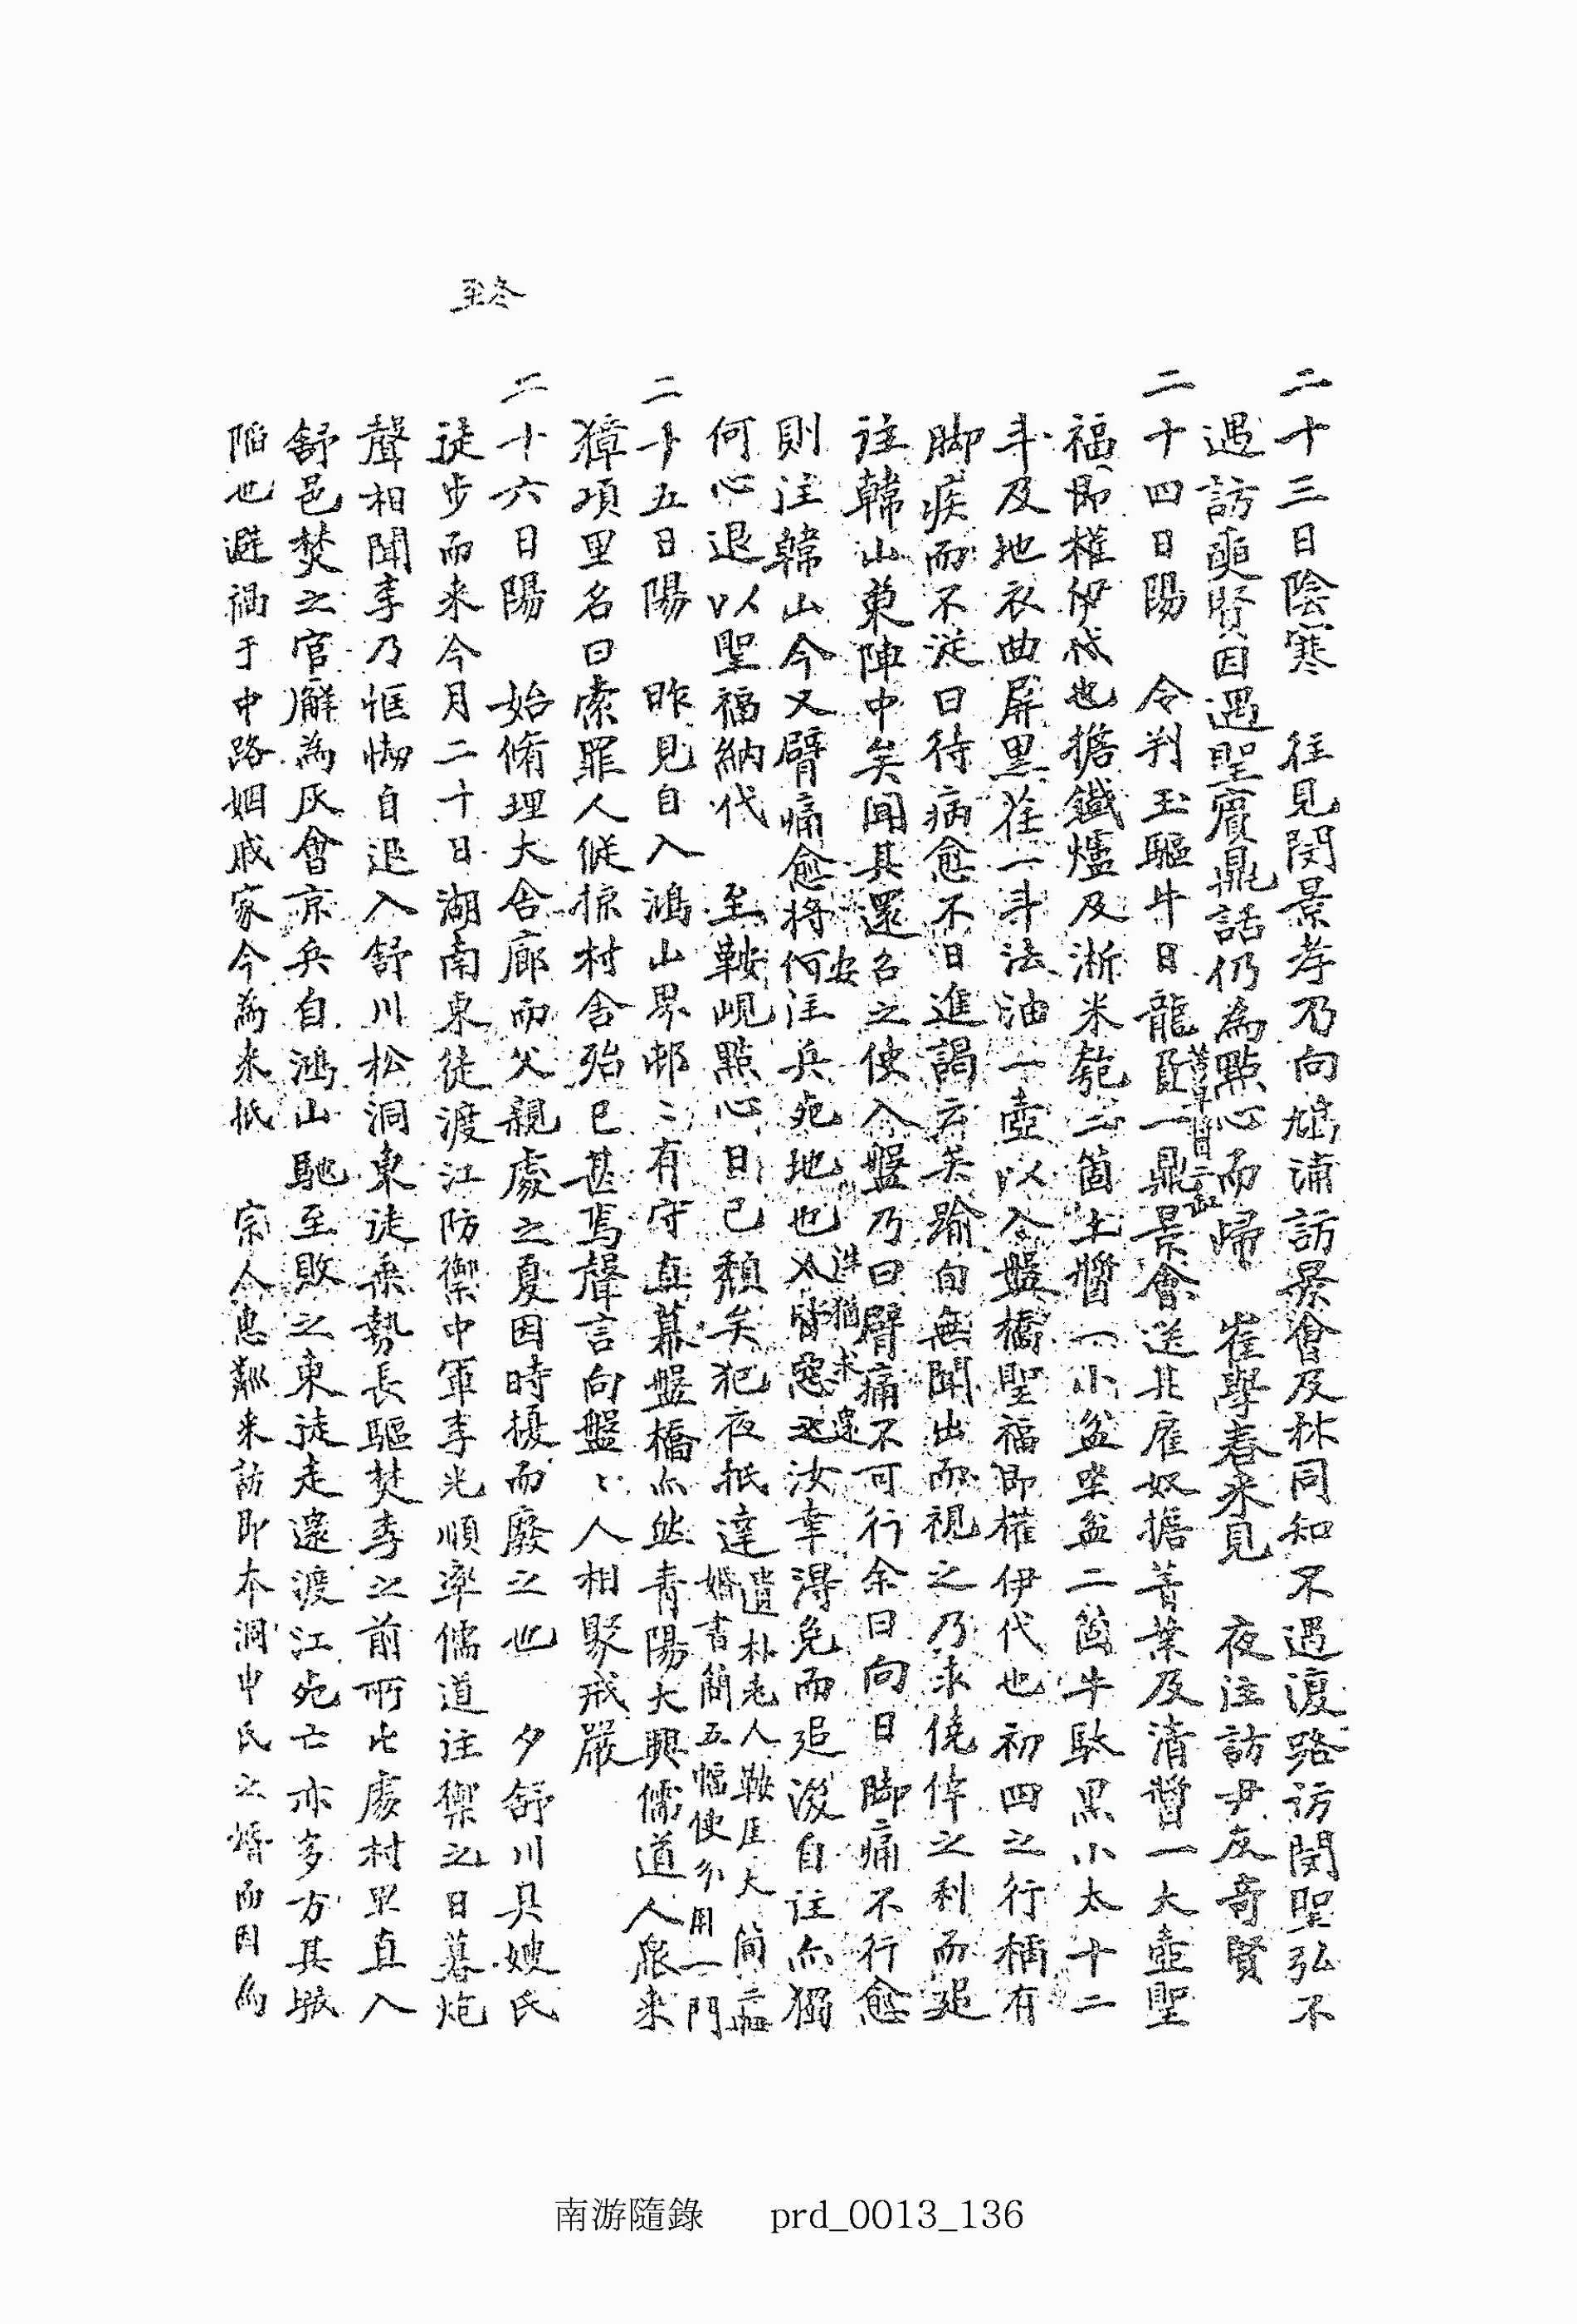 冬至
二十三日陰寒 往見閔景孝乃向鴻浦訪景會及林同知不遇復路訪閔聖弘不
遇訪奭賢因遇聖賓鼎話仍為點心而歸 崔學春來見 夜往訪尹友奇賢
二十四日陽 令判玉驅牛日龍匠一鼎景會送其雇奴擔菁葉及清醬一大壺聖
福即權伊代也擔鐵爐及淅米匏二箇土醬一小盆坐盆二箇牛馱黑小太十二
斗及地衣曲屏黑荏一斗法油一壺以入盤橋聖福即權伊代也初四之行稱有
脚疾而不從曰待病愈不日進謁云矣踰旬無聞出而視之乃求僥倖之利而追
往韓山東陣中矣聞其還召之使入盤乃曰臂痛不可行余曰向日脚痛不行愈
則往韓山今又臂痛愈將安何往兵死地也人皆惡之汝幸得免而追後自往亦獨
何心退以聖福納代 至鞍峴點心日已頹矣犯夜抵達 遺朴老人鞍匠大簡二幅
婚書簡五幅使分用一門
二十五日陽 昨見自入鴻山界邨〻有守直幕盤橋亦然青陽大興儒道人眾來
獐項里名曰索罪人縱掠村舍殆已甚焉聲言向盤〻人相聚戒嚴
二十六日陽 始脩理大舍廊而父親處之夏因時擾而廢之也 夕舒川具嫂氏
徒步而來今月二十日湖南東徒渡江防禦中軍李光順率儒道往禦之日暮炮
聲相聞李乃恇㤼自退入舒川松洞東徒乘勢長驅焚李之前所止處村里直入
舒邑焚之官廨為灰會京兵自鴻山馳至敗之東徒走還渡江死亡亦多方其城
陷也避禍于中路姻戚家今為來抵 宗人惠來訪即本洞申氏之婿而因為
南游隨錄 prd_0013_136